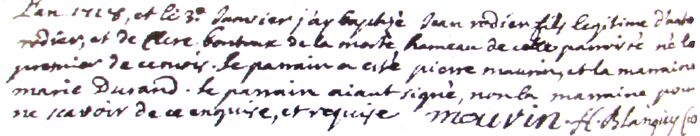 L'an 1718, et le 3e Janvier j'ay baptisé Jean rodier fils legitime d'anto
rodier, et de Clere boutoux de la mothe hameau de cette parroisse né le
premier de ce mois. le parrain a esté pierre maurin, et la marraine
marie Durand. le parrain aiant signé, non la marraine pour
ne scavoir de ce enquise, et requise mauvin. H. Blanquy